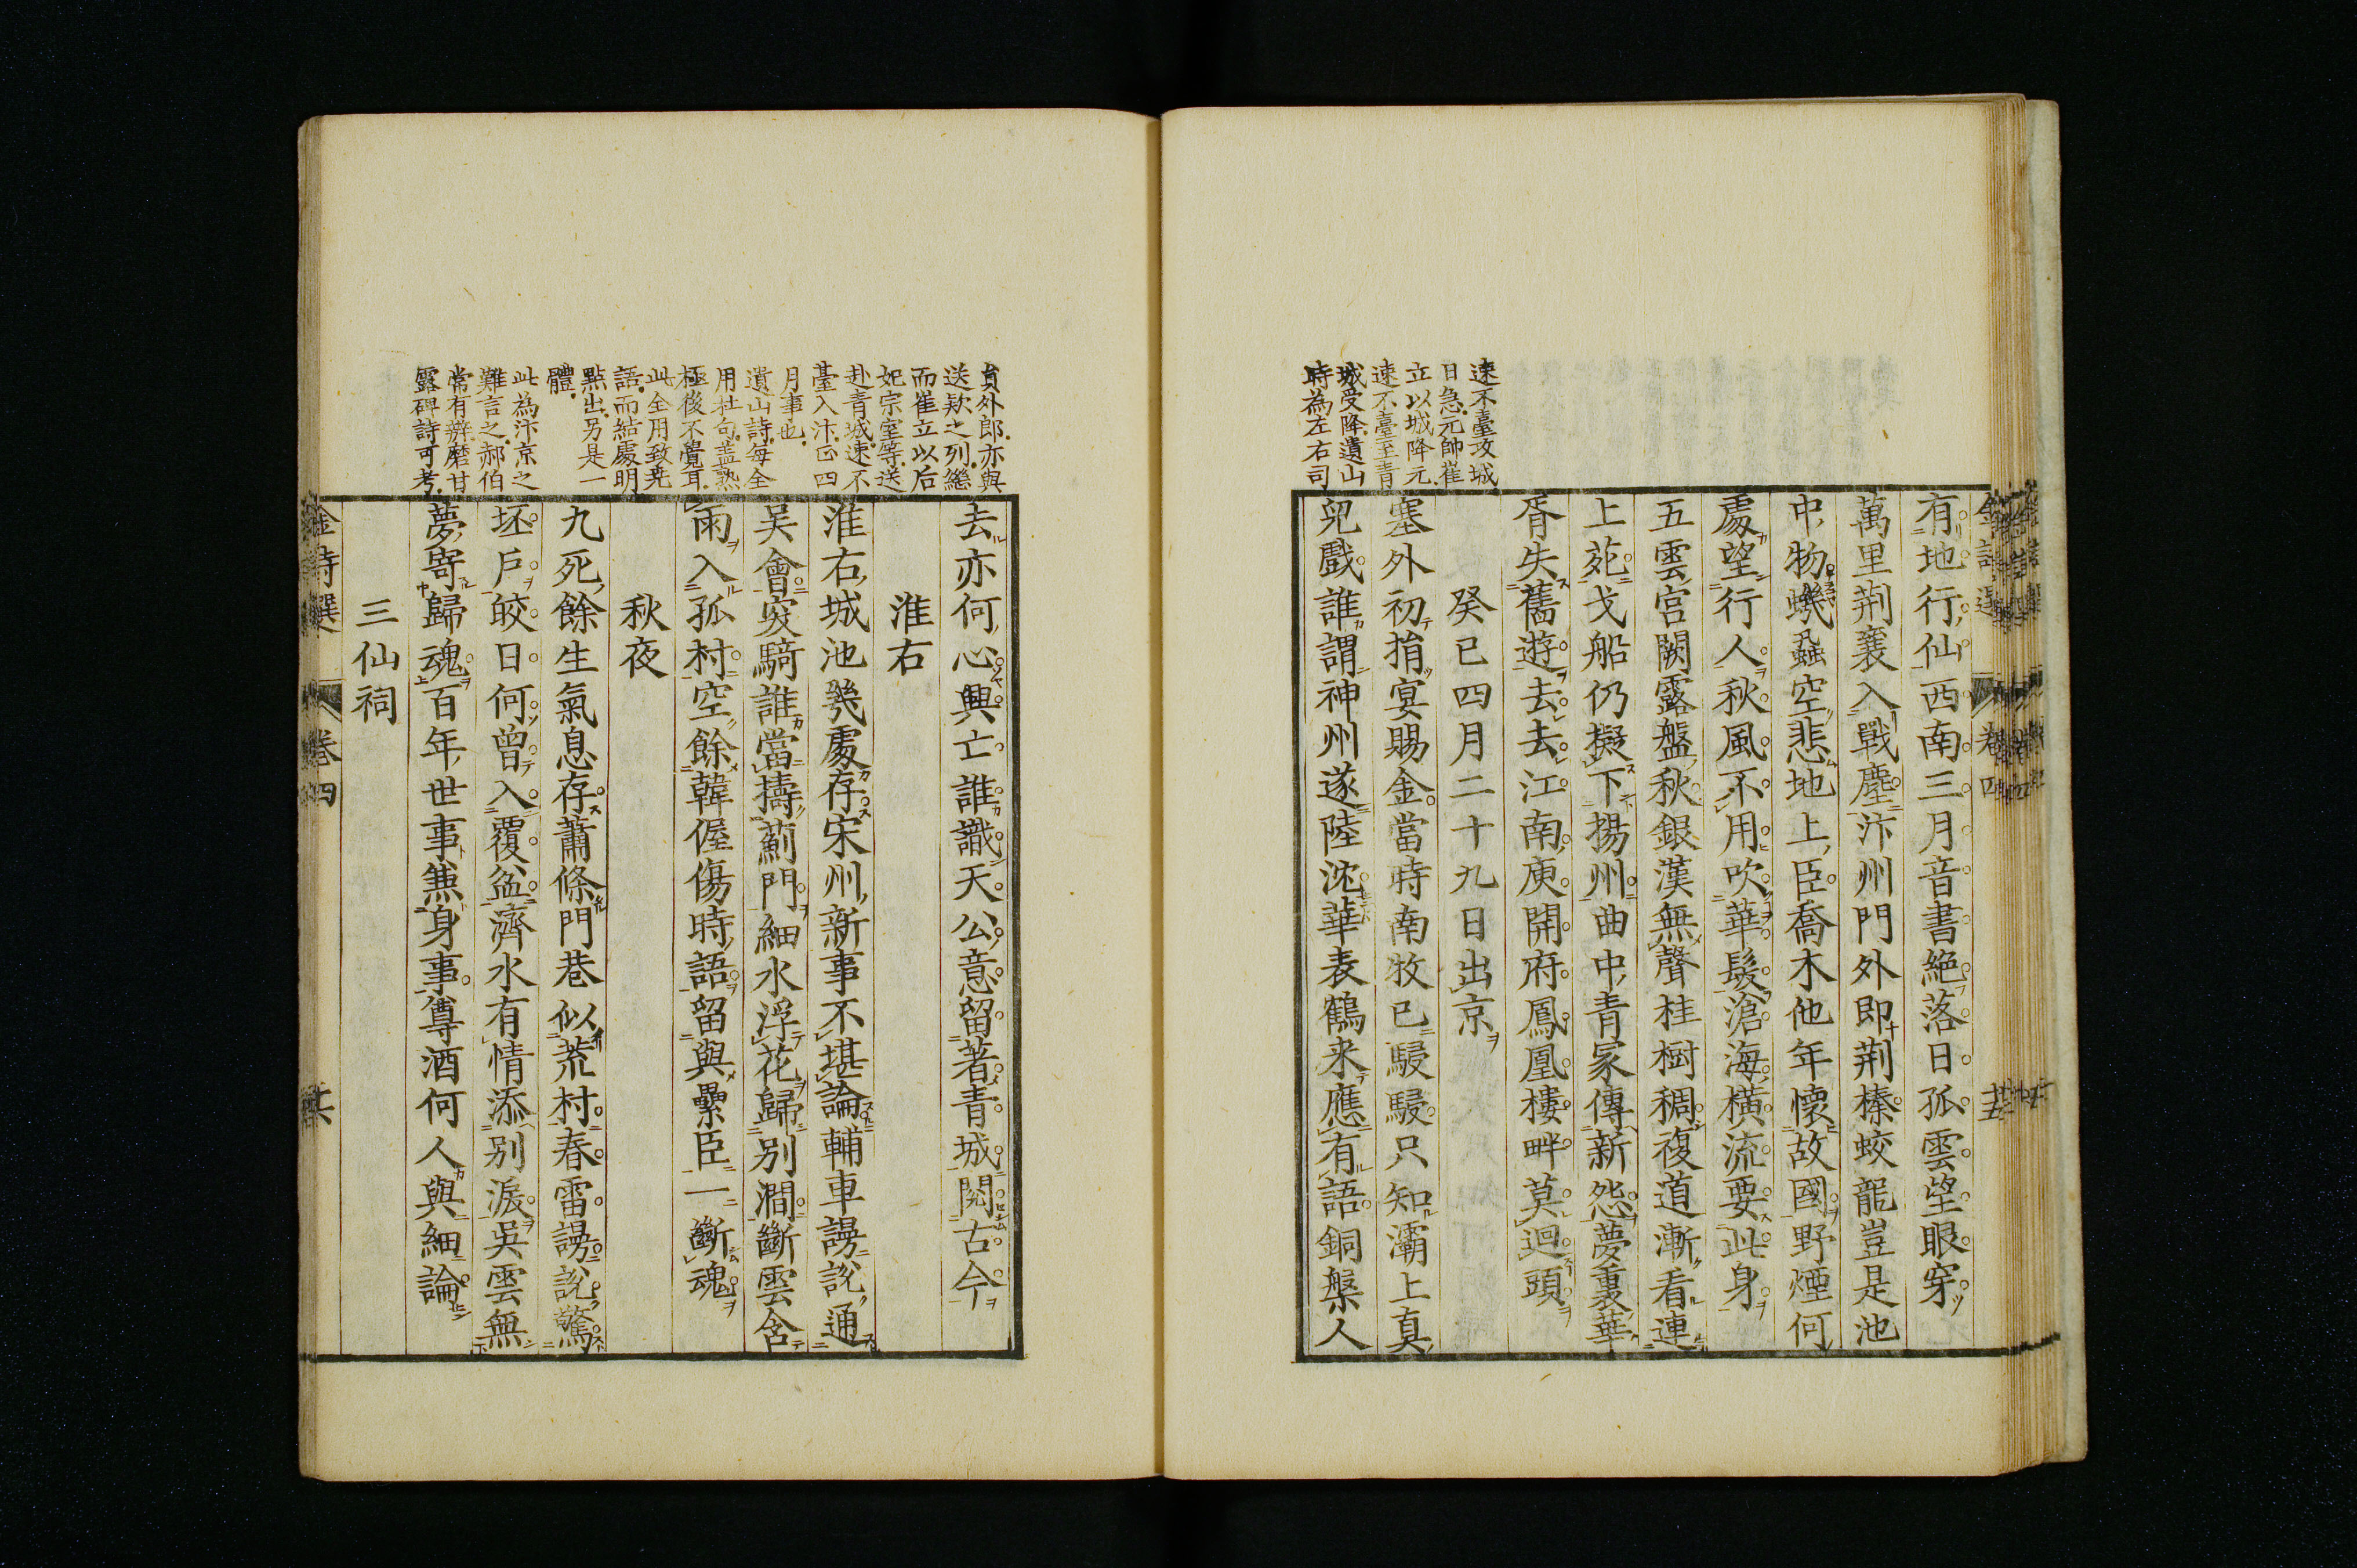 速不臺攻城
日急元帥崔
立以城降元
速不臺至青
城受降遺山
時為左右司
有地行仙西南三月音書絕落日孤雲望眼穿
萬里荆襄入戰塵汴州門外即荆榛蛟龍豈是池
中物蟣蝨空悲地上臣喬木他年懷故國野煙何
處望行人秋風不用吹華髮滄海橫流要此身
五雲宮闕露盤秋銀漢無聲桂樹稠複道漸看連
上苑戈船仍擬下揚州曲中青冢傳新怨夢裏華
胥失舊遊去去江南庾開府鳳凰樓畔莫迴頭
癸巳四月二十九日出京
塞外初捐宴賜金當時南牧已駸駸只知灞上真
兒戲誰謂神州遂陸沈華表鶴来應有語銅槃人
員外郎亦與
送欵之列繼
而崔立以后
妃宗室等送
赴青城速不
臺入汴正四
月事也
遺山詩每全
用杜句蓋熟
極後不覺耳
此全用致堯
語而結處明
點出另是一
體
此為汴京之
難言之郝伯
常有辨磨甘
露碑詩可考
去亦何心興亡誰識天公意留著青城閱古今
淮右
淮右城池幾處存宋州新事不堪論輔車謾說通
吴會突騎誰當擣薊門細水浮花歸别澗斷雲含
雨入孤村空餘韓偓傷時語留與纍臣一斷魂
秋夜
九死餘生氣息存蕭條門巷似荒村春雷謾說驚
坯戶皎日何曾入覆盆濟水有情添别淚吳雲無
夢寄歸魂百年世事兼身事尊酒何人與細論
三仙祠
金詩選 卷四